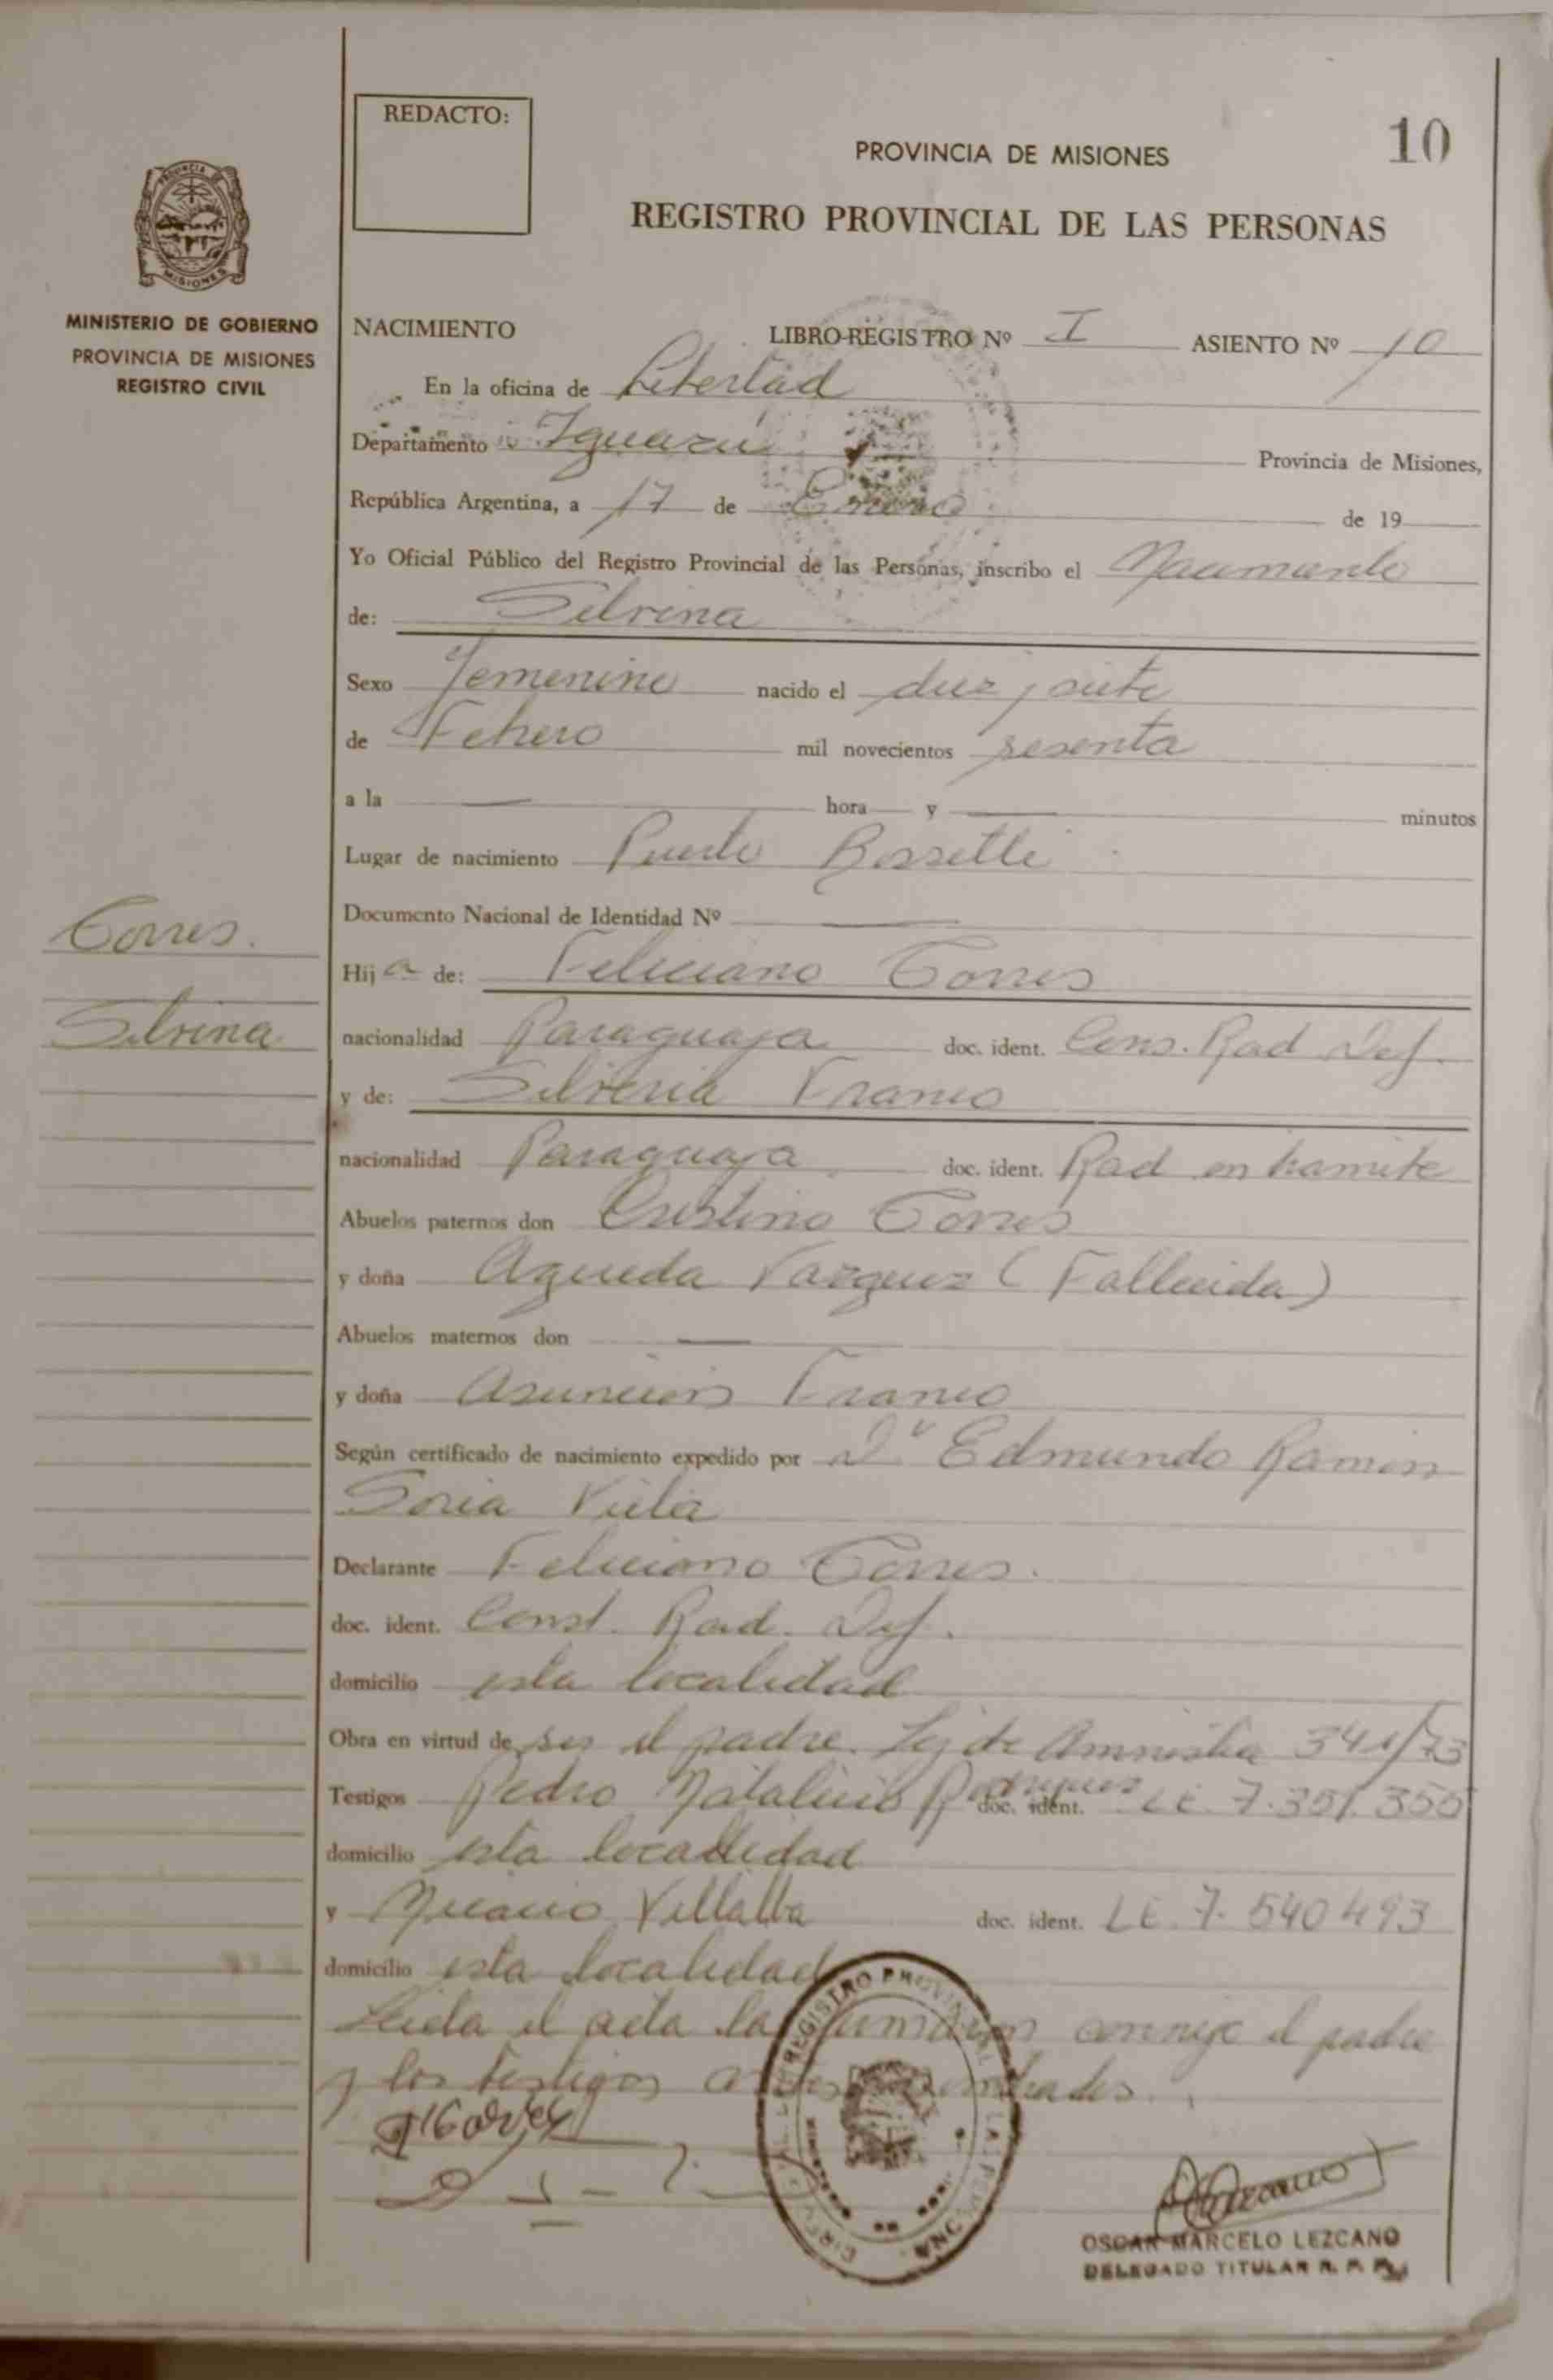 REDACTO:
10
PROVINCIA DE MISIONES
REGISTRO PROVINCIAL DE LAS PERSONAS
PROVINCIA DE
MISIONES
MINISTERIO DE GOBIERNO
PROVINCIA DE MISIONES
REGISTRO CIVIL
NACIMIENTO LIBRO-REGISTRO Nº I ASIENTO Nº 10
En la oficina de Libertad
Departamento Iguazú Provincia de Misiones,
República Argentina, a 17 de Enero de 19
Yo Oficial Público del Registro Provincial de las Personas, inscribo el Nacimiento
de: Silvina
Sexo Femenino nacido el diez y siete
de Febrero mil novecientos sesenta
a la — hora — y — minutos
Lugar de nacimiento Puerto Bossetti
Documento Nacional de Identidad Nº —
Torres.
Silvina
Hija de: Feliciano Torres
nacionalidad Paraguaya doc. ident. Cons. Rad Def.
y de: Silveria Franco
nacionalidad Paraguaya doc. ident. Rad en tramite
Abuelos paternos don Cristino Torres
y doña Agueda Vazquez (Fallecida)
Abuelos maternos don —
y doña Asunción Franco
Según certificado de nacimiento expedido por Dr Edmundo Ramon
Soria Vieta
Declarante Feliciano Torres.
doc. ident. Const. Rad. Def.
domicilio esta localidad
Obra en virtud de ser el padre. Ley de Amnistia /73
Testigos Pedro Natalicio Rodriguez doc. ident. LE. 7.351.350
domicilio esta localidad
y Villalba doc. ident. LE. 7.540493
domicilio esta localidad
Leida el acta la firmaron conmigo el padre
y los testigos antes nombrados.
REGISTRO PROVINCIAL
OSCAR MARCELO LEZCANO
DELEGADO TITULAR R. P. P.